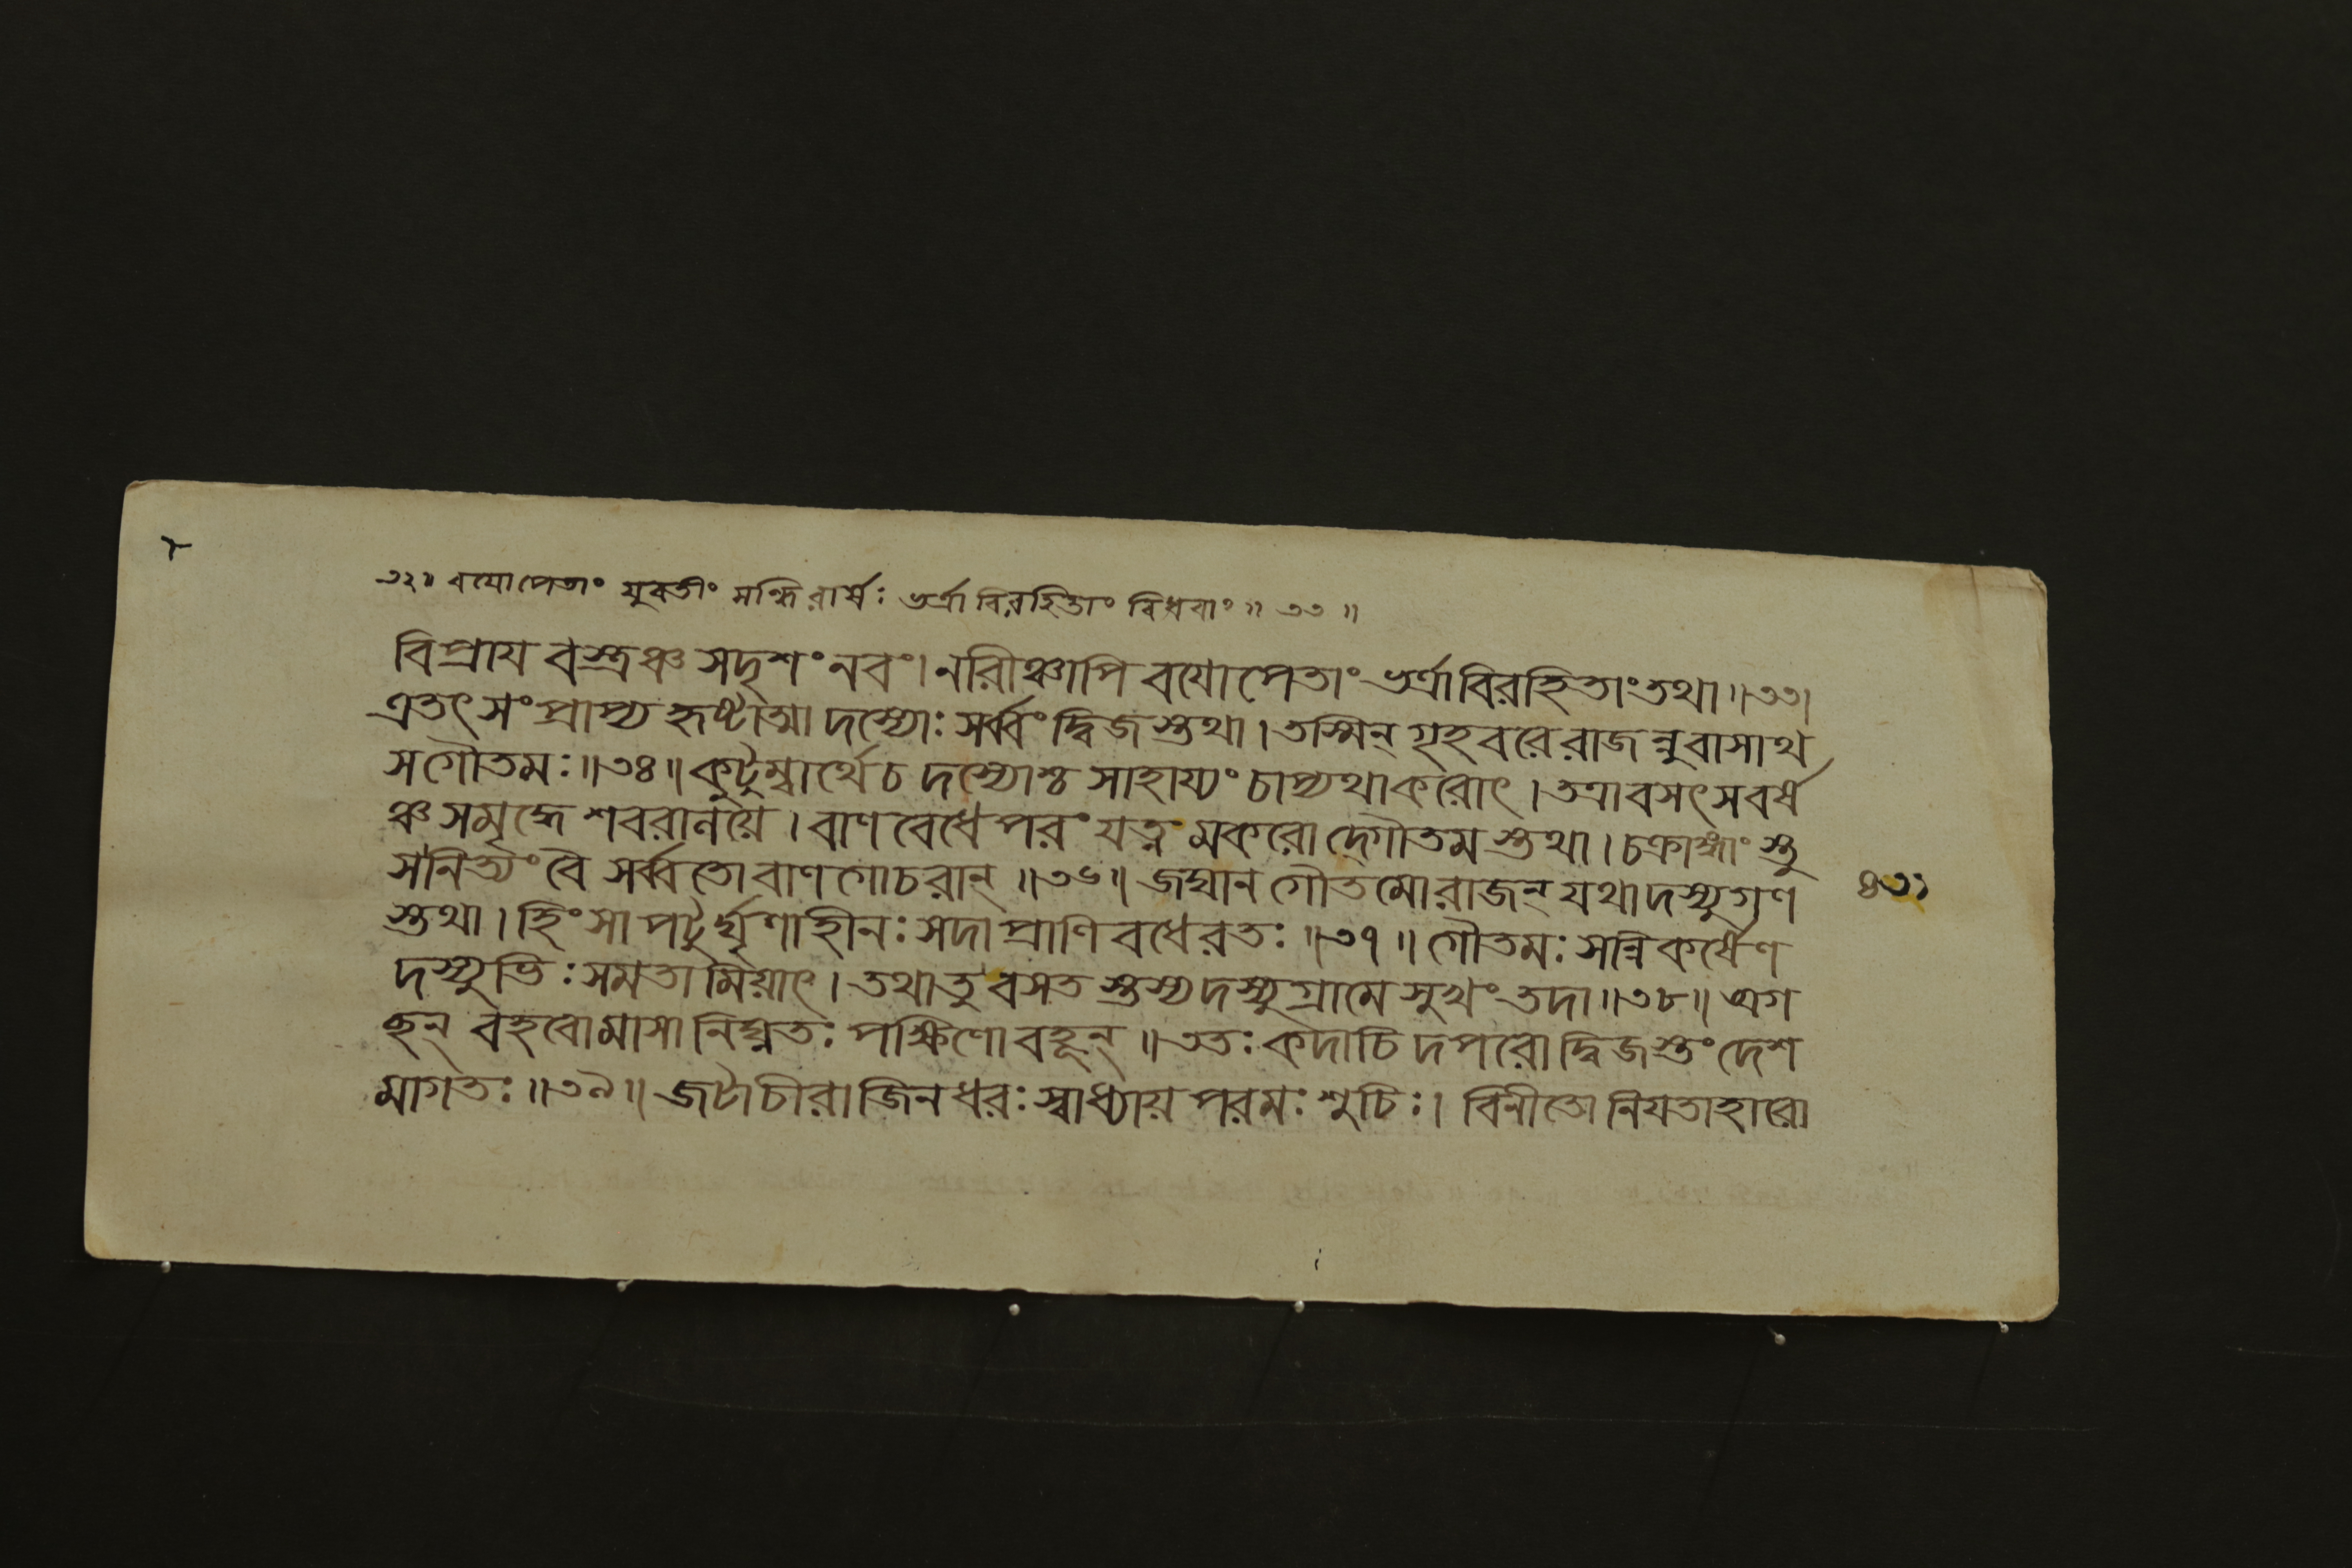 ৩২॥ বযোপেতাং যুবতীং সন্ধিরার্ষঃ ভর্ত্রাবিরহিতাং বিধবাং॥ ৩৩ ॥
বিপ্রায বস্ত্রঞ্চ সদৃশং নবং। নরীঞ্চাপি বযোপেতাং ভর্ত্রাবিরহিতাং তথা॥৩৩।
এতৎ সংপ্রাপ্য হৃষ্টাত্মা দস্যোঃ সর্ব্বং দ্বিজস্তথা। তস্মিন্ গৃহবরেরাজন্নুবাসাথ
সগৌতমঃ॥৩৪॥ কুটুম্বার্থেচ দস্যোশ্চ সাহায্যং চাপ্যথাকরোৎ। তত্রাবসৎসবর্ষ
ঞ্চ সমৃদ্ধে শবরালয়ে। বাণবেধেপরং যত্নং মকরোদ্গৌতমস্তথা। চক্রাঙ্গাংস্তু
সনিত্যংবৈ সর্ব্বতোবাণগোচরান্ ॥৩৬॥ জঘান গৌতমোরাজন্ যথাদস্যুগণ
৪৩১
স্তথা। হিংসাপটুর্ঘৃণাহীনঃ সদাপ্রাণিবধেরতঃ॥৩৭॥ গৌতমঃ সন্নিকর্ষেণ
দস্যুভিঃ সমতামিয়াৎ। তথাতু বসতস্তস্য দস্যুগ্রামে সুখং তদা॥৩৮॥ অগ
ছন্ বহবোমাসা নিঘ্নতঃ পক্ষিণোবহূন্॥ ততঃ কদাচিদপরোদ্বিজস্তং দেশ
মাগতঃ॥৩৯॥ জটাচীরাজিনধরঃ স্বাধ্যায়পরমঃ শুচিঃ। বিনীতোনিযতাহারো